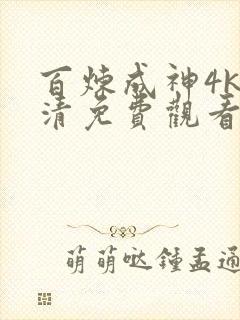 百煉成神4K
清免費觀看
萌萌哒鍾孟通